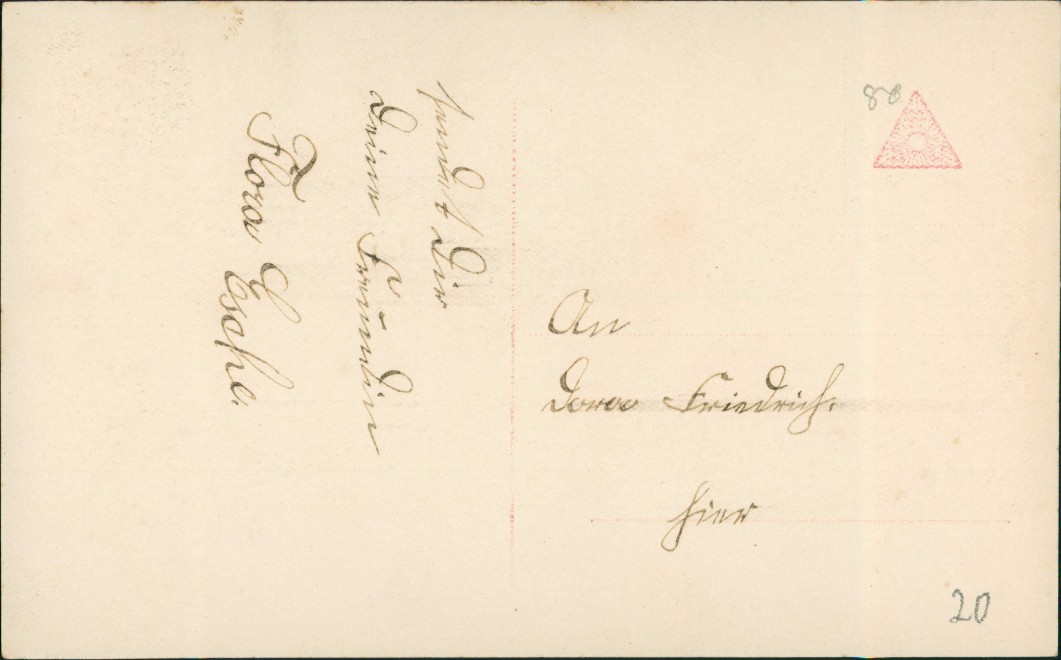 sendet Dir
Deine Freundin
Flora Esche.
An
Dora Friedrich.
hier
80
20